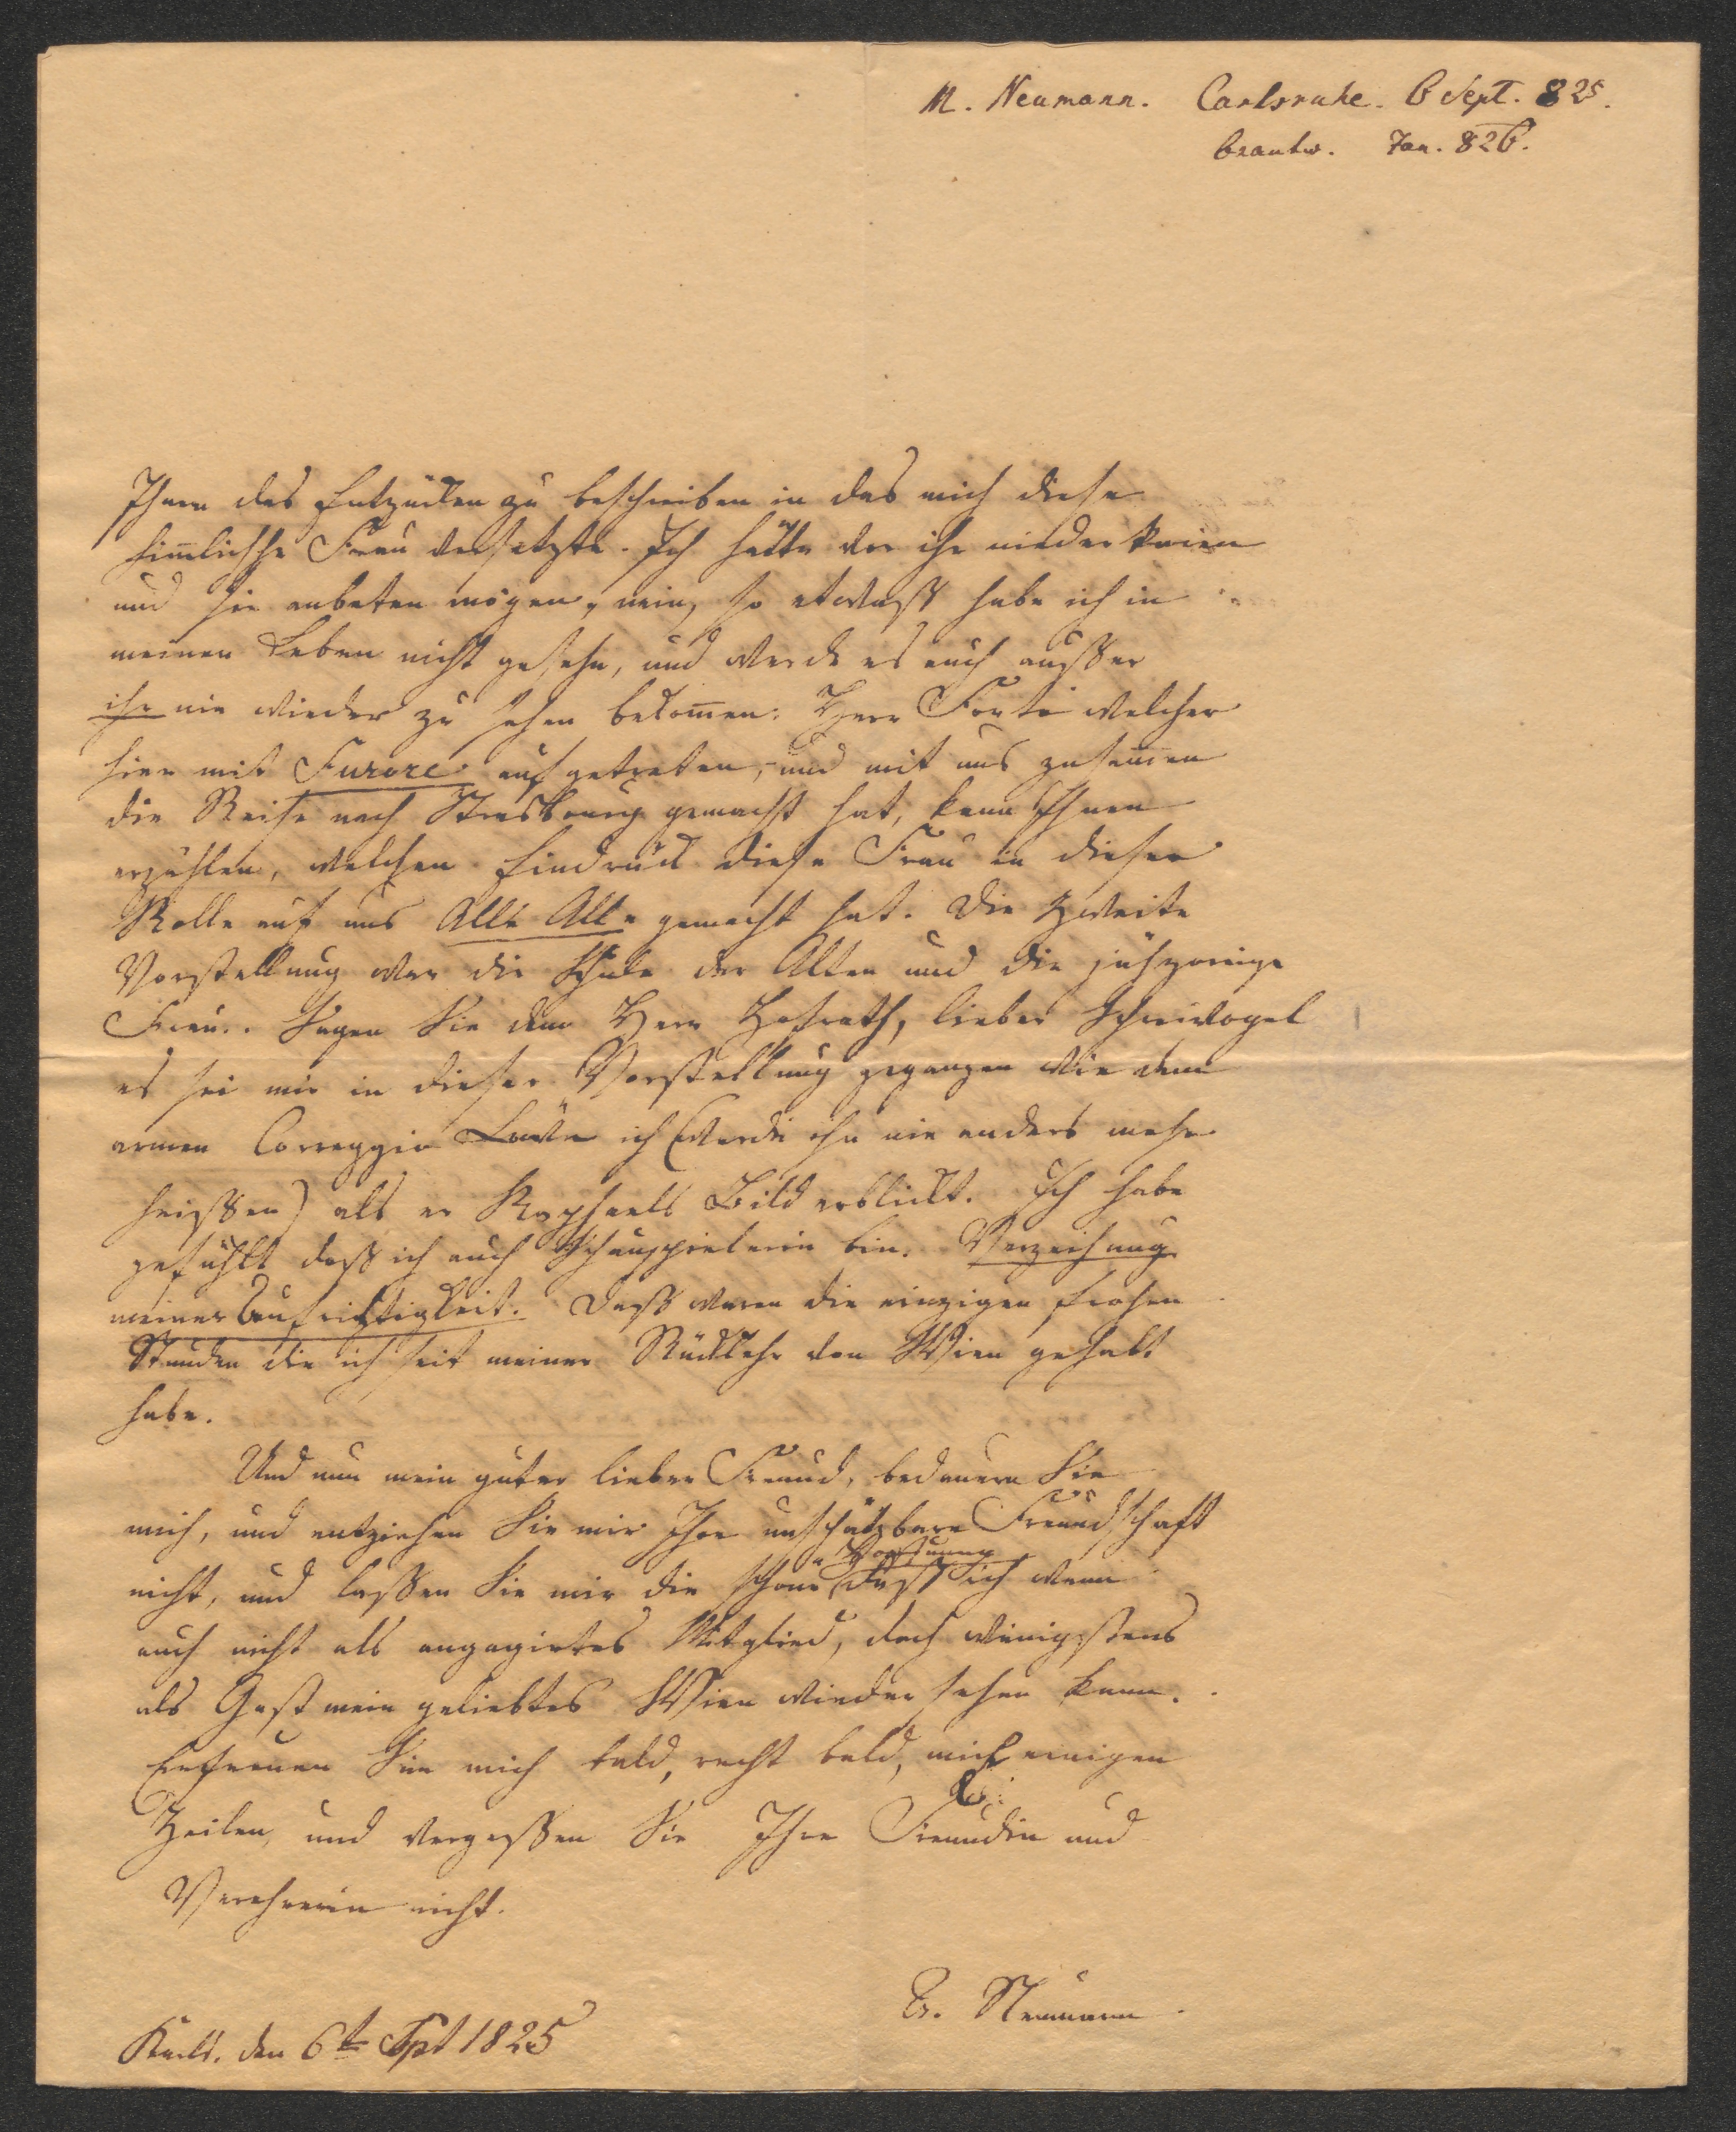 M. Neumann. Carlsruhe. 6 Sept. 825.
beantw. Jan. 826.
Ihnen das Entzücken zu beschreiben in das mich diese
him̄lische Frau versetzte. Ich hätte vor ihr niederknien
und sie anbeten mögen, nein, so etwaß habe ich in
meinen Leben nicht gesehn, und werde es auch ausser
ihr nie wieder zu sehen bekom̄en. Herr Forti welcher
hier mit Furore aufgetreten, und mit uns zusam̄en
die Reise nach Strasbourg gemacht hat, kann Ihnen
erzählen, welchen Eindruck diese Frau in dieser
Rolle auf uns Alle Alle gemacht hat. Die zweite
Vorstellung war die Schule der Alten und die jähzornige
Frau. Sagen Sie dem Herr Hofrath, lieber Schreivogel
es sei mir in dieser Vorstellung gegangen wie dem
armen Correggio Löwe ich (werde ihn nie anders mehr
heissen) als er Raphaels Bild erblickt. Ich habe
gefühlt daß ich auch Schauspielerin bin. Verzeihung
meiner Aufrichtigkeit. Daß waren die einzigen frohen
Stunden die ich seit meiner Rückkehr von Wien gehabt
habe.
Und nun mein guter lieber Freund, bedauern Sie
mich, und entziehen Sie mir Ihre unschätzbare Freundschaft
nicht, und lassen Sie mir die schöne Hoffnung daß ich wenn
auch nicht als engagirtes Mitglied, doch wenigstens
als Gast mein geliebtes Wien wieder sehen kann.
Erfreuen Sie mich bald, recht bald, mit einigen
Zeilen, und vergessen Sie Ihre Freundin und
Verehrerin nicht.
A. Neumann.
Karls. den 6t Spt 1825